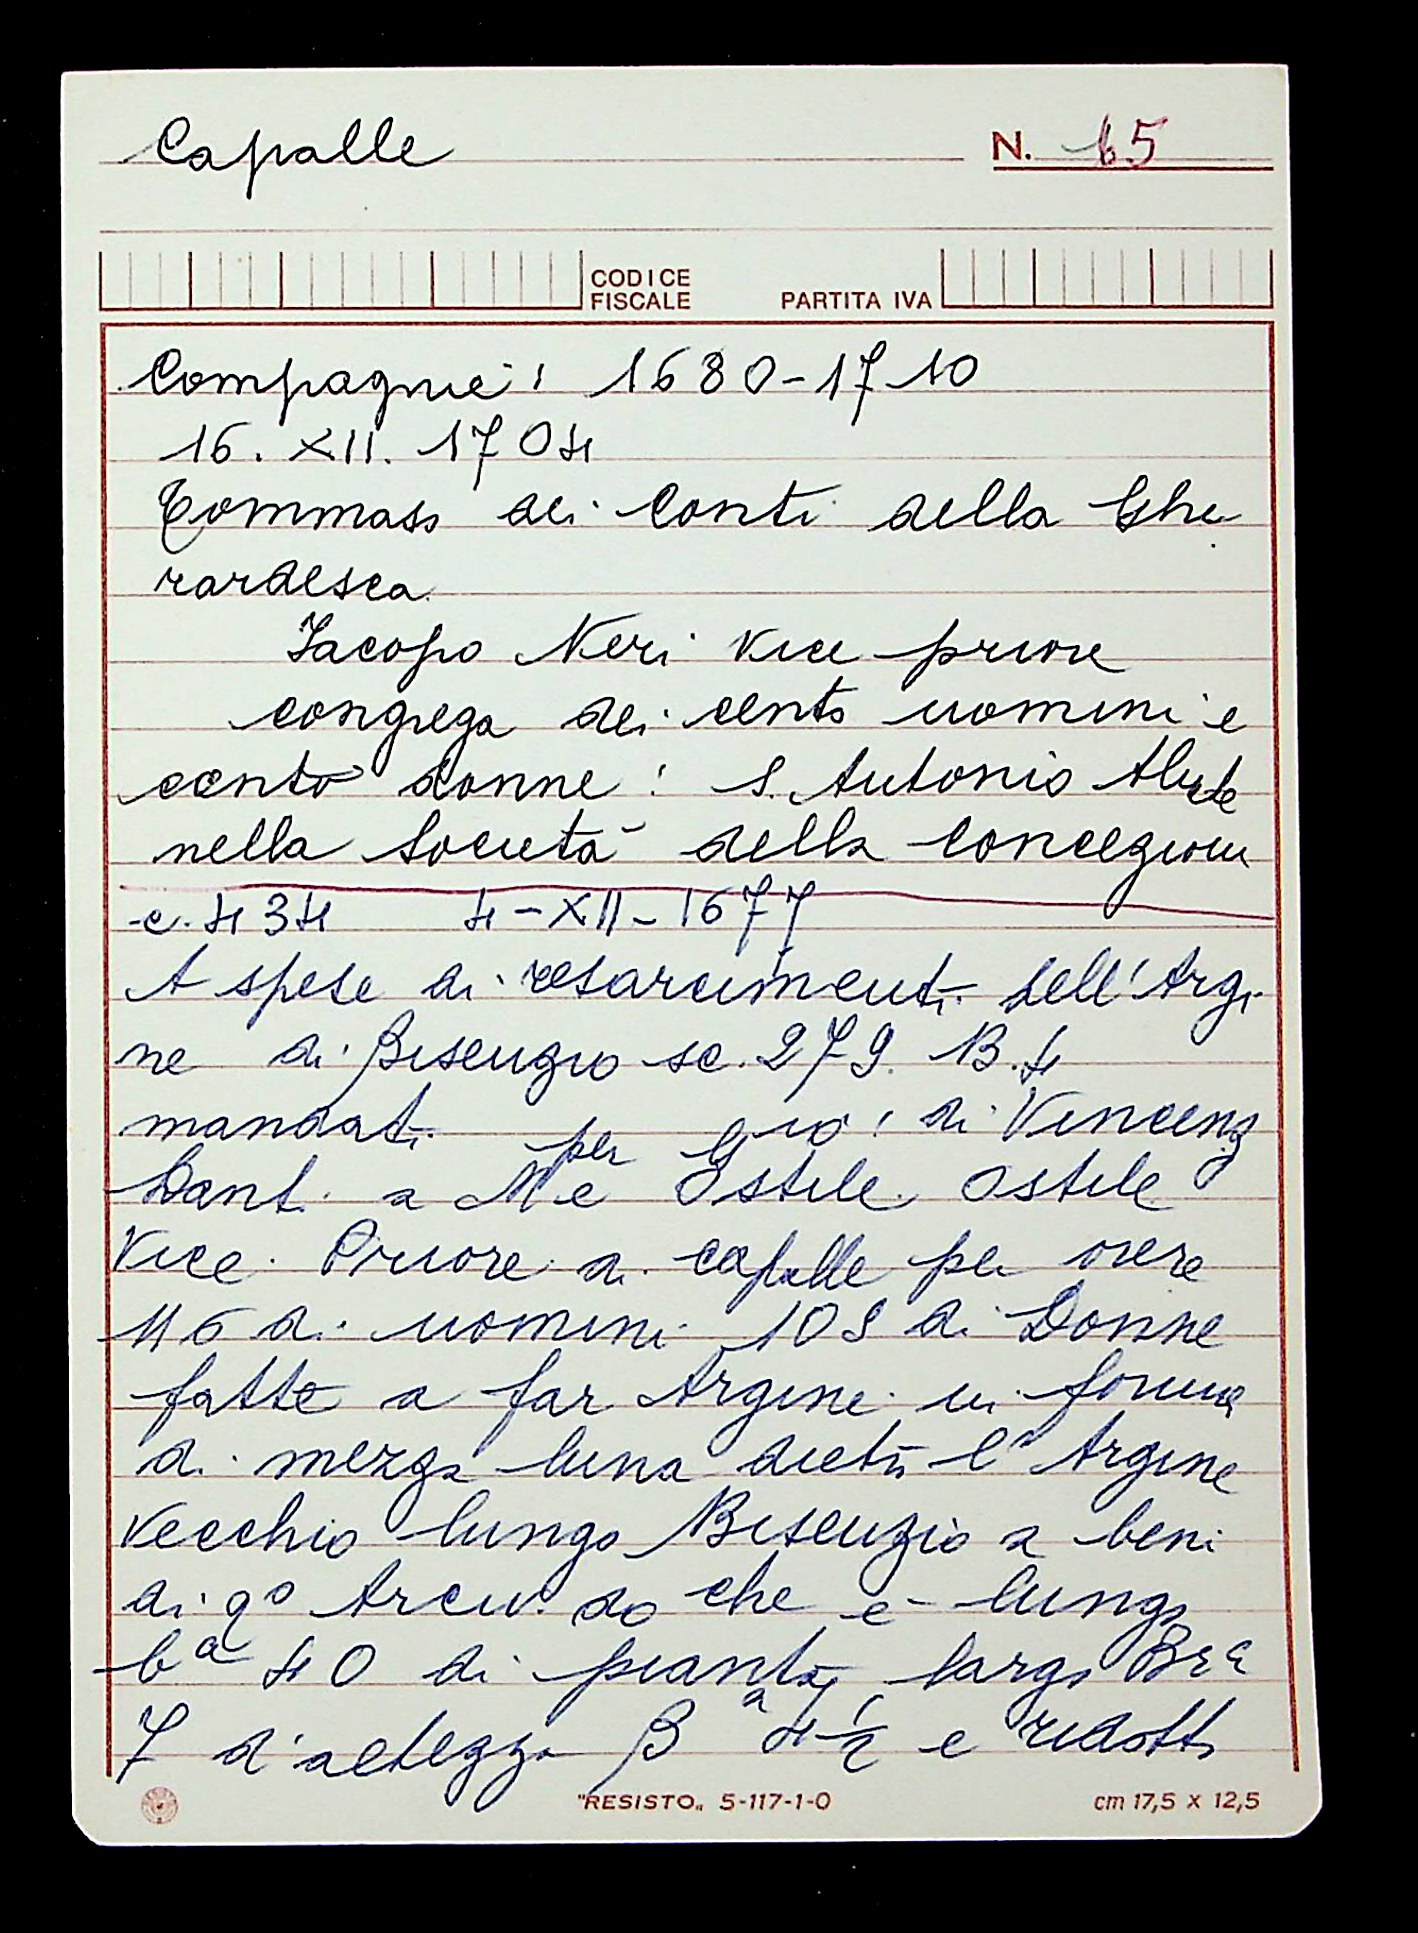 Capalle
N. 65
CODICE
FISCALE
PARTITA IVA
Compagnie: 1680-1710
16. XII. 1704
Tommaso dei Conti della Ghe
rardesca
Iacopo Neri vice priore
congrega dei cento uomini e
cento donne: S. Antonio Abate
nella Società della Concezione
c. 434 4-XII-1677
A spese di resarcimenti dell'Argi
ne di Bisenzio sc. 279. 13. 4
mandati per Gio: di Vincenz
Dant. a Me Ostile Ostile
Vice Priore di Capalle per opere
116 di uomini 109 di Donne
fatte a far Argine in forma
di mezza luna dietro l'Argine
Vecchio lungo Bisenzio a beni
di qo Arciv.do che è lungo
ba 40 di pianta, largo Bra
7 d'altezza Ba 4 1/2 e ridotto
"RESISTO„ 5-117-1-0
cm 17,5 x 12,5